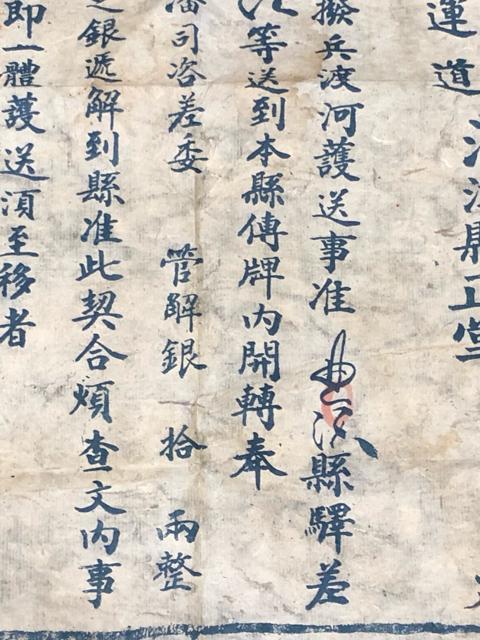 運道
縣正堂
撥兵渡河護送事准 縣驛差
等送到本縣傳牌內開轉奉
藩司咨差委 管解銀 拾 兩整
之銀遞解到縣准此契合煩查文內事
即一體護送須至移者